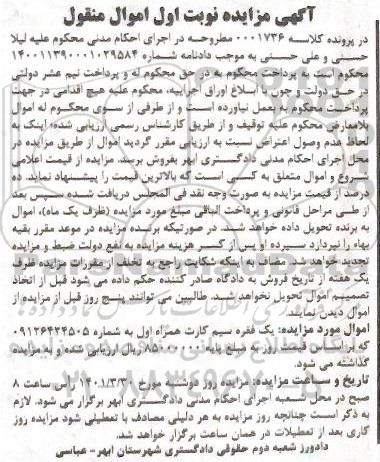 آگهی مزایده نوبت اول اموال منقول
در پرونده کلاسه ۰۰۰۱۷۳۶ مطروحه در اجرای احکام مدنی محکوم علیه لیلا
حسنی و علی حسنی به موجب دادنامه شماره ۱۴۰۰۱۱۳۹۰۰۰۱۰۲۹۵۸۴
محکوم است به پرداخت محکوم به در حق محکوم له و پرداخت نیم عشر دولتی
در حق دولت و چون با ابلاغ اوراق اجراییه، محکوم علیه هیچ اقدامی در جهت
پرداخت محکوم به بعمل نیاورده است و از طرفی از سوی محکوم له اموال
بلامعارض محکوم علیه توقیف و از طریق کارشناس رسمی ارزیابی شده اینک به
لحاظ عدم وصول اعتراض نسبت به ارزیابی مقرر گردید اموال از طریق مزایده در
محل اجرای احکام مدنی دادگستری ابهر بفروش برسد. مزایده از قیمت اعلامی
شروع و اموال متعلق به کسی است که بالاترین قیمت را پیشنهاد نماید. ده
درصد از قیمت مزایده به صورت وجه نقد فی المجلس دریافت شده سپس بعد
از طی مراحل قانونی و پرداخت الباقی مبلغ مورد مزایده (ظرف یک ماه)، اموال
به برنده تحویل داده خواهد شد. در صورتیکه برنده مزایده در موعد مقرر بقیه
بهاء را نپردازد سپرده او پس از کسر هزینه مزایده به نفع دولت ضبط و مزایده
تجدید خواهد شد. مضاف به اینکه شکایت راجع به تخلف از مقررات مزایده ظرف
یک هفته از تاریخ فروش به دادگاه صادر کننده حکم داده می شود قبل از اتخاذ
تصمیم اموال تحویل نخواهد شد. طالبین می توانند پنج روز قبل از مزایده از
اموال دیدن نمایند.
اموال مورد مزایده: یک فقره سیم کارت همراه اول به شماره ۰۹۱۲۶۴۲۴۵۰۵
که بر اساس قیمت روز به مبلغ پایه ۸۵۰۰۰۰۰۰ ریال ارزیابی شده و به مزایده
گذاشته می شود.
تاریخ و ساعت مزایده: مزایده روز دوشنبه مورخ ۱۴۰۱/۳/۳۰ رأس ساعت ۸
صبح در محل شعبه اجرای احکام مدنی دادگستری ابهر برگزار می شود. لازم
به ذکر است چنانچه روز مزایده به هر دلیلی مصادف با تعطیلی شود مزایده روز
کاری بعد از تعطیلات در همان ساعت برگزار خواهد شد.
دادورز شعبه دوم حقوقی دادگستری شهرستان ابهر- عباسی